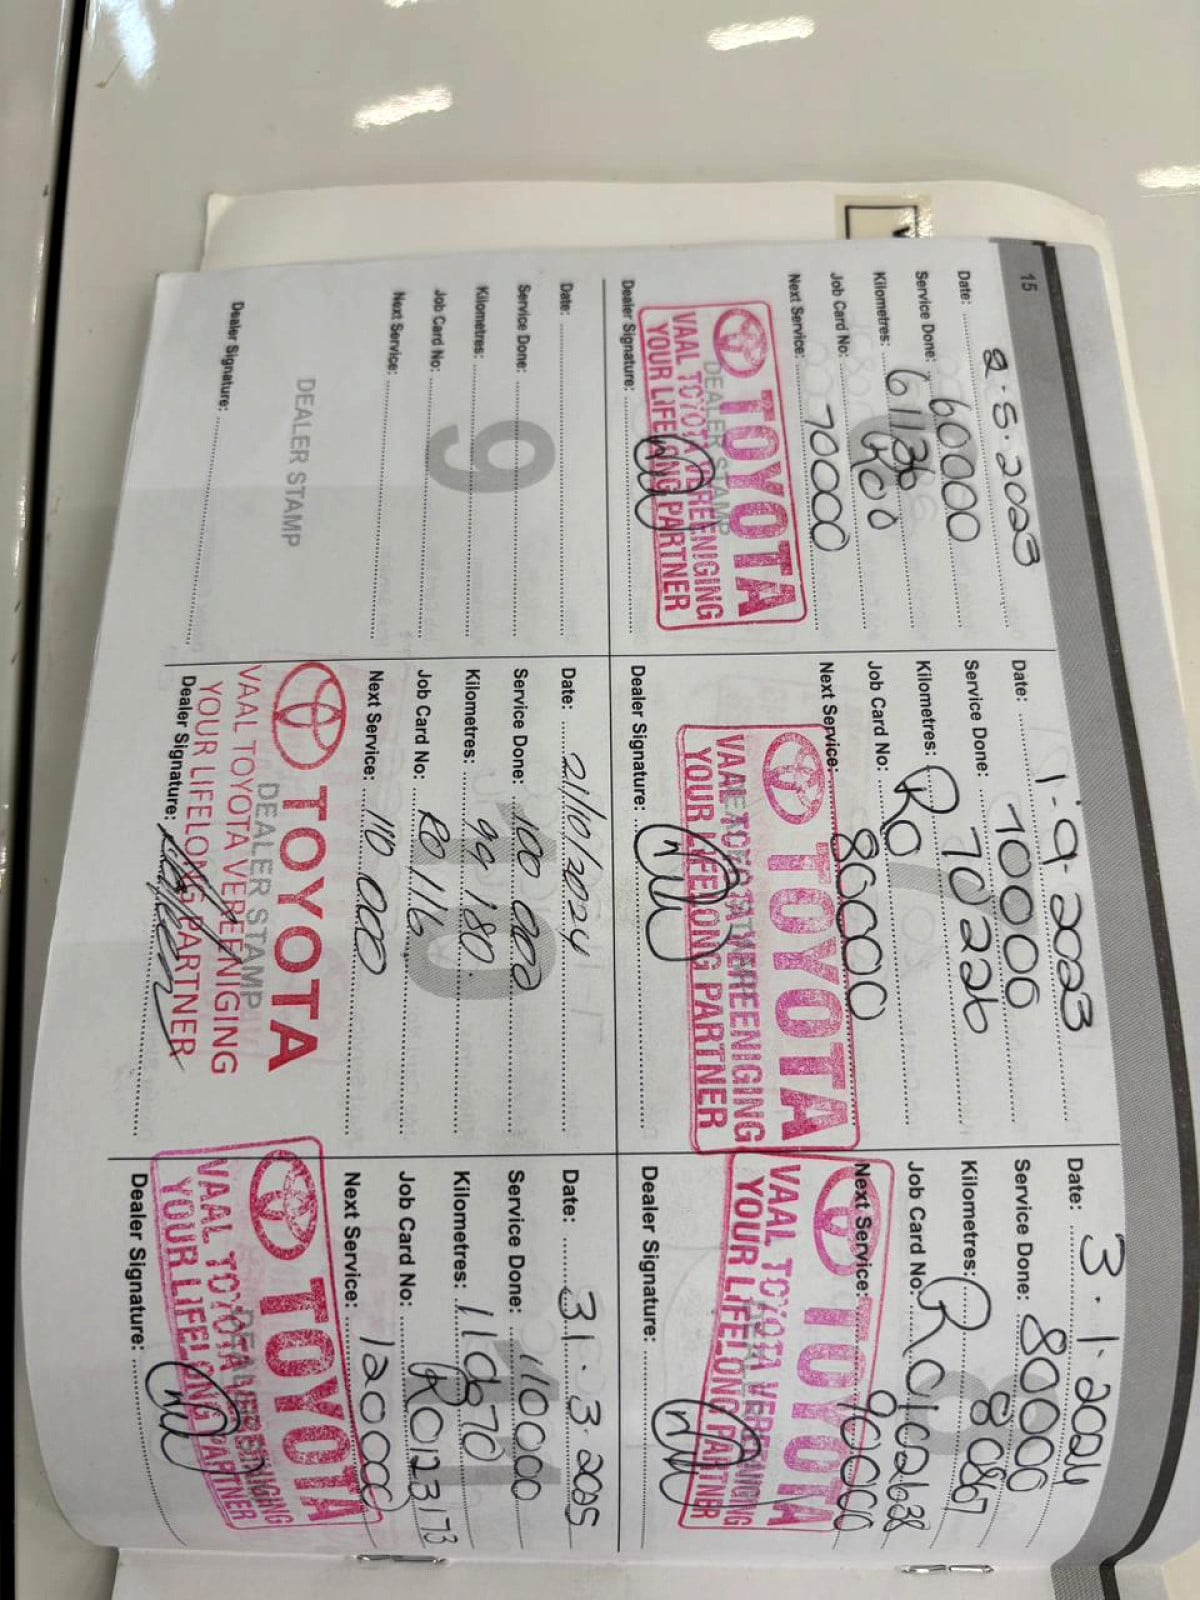 15
Date: 2.5.2023
Service Done: 60000
Kilometres: 61136
Job Card No: R00
Next Service: 70000
TOYOTA
VAAL TOYOTA VEREENIGING
YOUR LIFELONG PARTNER
DEALER STAMP
Dealer Signature:
7
Date: 1.9.2023
Service Done: 70000
Kilometres: 70226
Job Card No: R0
Next Service: 80000
TOYOTA
VAAL TOYOTA VEREENIGING
YOUR LIFELONG PARTNER
Dealer Signature:
8
Date: 3.1.2024
Service Done: 80000
Kilometres: 80867
Job Card No:
Next Service: 90000
TOYOTA
VAAL TOYOTA VEREENIGING
YOUR LIFELONG PARTNER
Dealer Signature:
9
Date:
Service Done:
Kilometres:
Job Card No:
Next Service:
DEALER STAMP
Dealer Signature:
10
Date: 21/10/2024
Service Done: 100 000
Kilometres: 99 180
Job Card No: R0116
Next Service: 110 000
TOYOTA
DEALER STAMP
VAAL TOYOTA VEREENIGING
YOUR LIFELONG PARTNER
Dealer Signature:
11
Date: 31.3.2025
Service Done: 110000
Kilometres:
Job Card No: R0123173
Next Service: 120000
TOYOTA
DEALER STAMP
VAAL TOYOTA VEREENIGING
YOUR LIFELONG PARTNER
Dealer Signature: